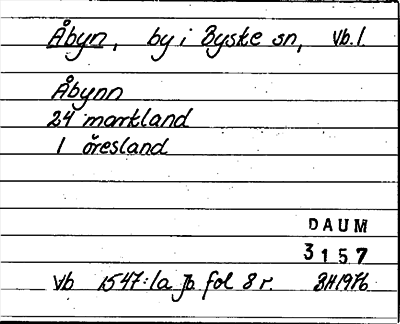 Åbyn, by i Byske sn, Vb.l.
Åbynn
24 markland
1 öresland
DAUM
3157
Vb 1547:1a Jb fol 8 r. BH1976